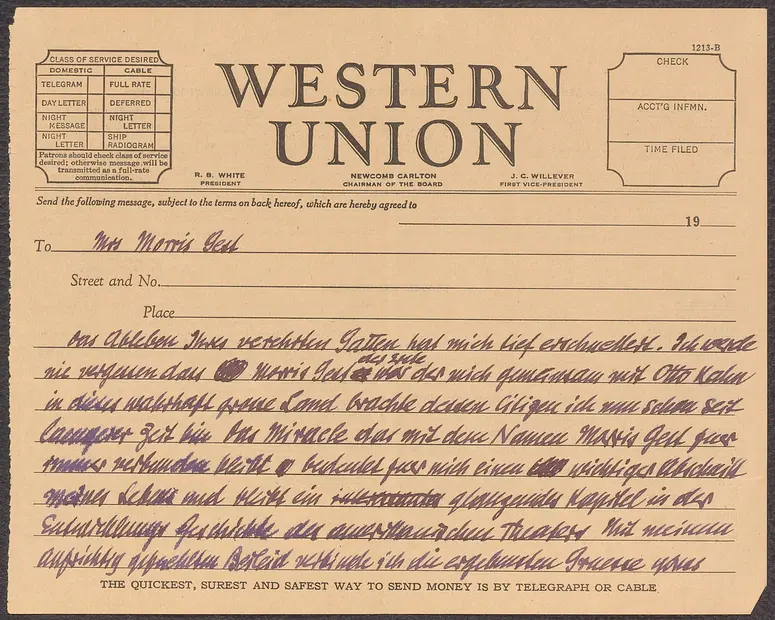 1213-B
CLASS OF SERVICE DESIRED
DOMESTIC CABLE
TELEGRAM FULL RATE
DAY LETTER DEFERRED
NIGHT MESSAGE NIGHT LETTER
NIGHT LETTER SHIP RADIOGRAM
Patrons should check class of service
desired; otherwise message will be
transmitted as a full-rate
communication.
WESTERN
UNION
R. B. WHITE
PRESIDENT
NEWCOMB CARLTON
CHAIRMAN OF THE BOARD
J. C. WILLEVER
FIRST VICE-PRESIDENT
CHECK
ACCT'G INFMN.
TIME FILED
Send the following message, subject to the terms on back hereof, which are hereby agreed to
19
To Mrs Morris Gest
Street and No.
Place
Das Ableben Ihres verehrten Gatten hat mich tief erschuettert. Ich werde
nie vergessen dass Morris Gest der erste war der mich gemeinsam mit Otto Kahn
in dieses wahrhaft grosse Land brachte dessen Citizen ich nun schon seit
laengerer Zeit bin Das Miracle das mit dem Namen Morris Gest fuer
immer verbunden bleibt bedeutet fuer mich einen wichtigen Abschnitt
meines Lebens und bleibt ein glaenzendes Kapitel in der
Entwicklungs Geschichte des amerikanischen Theaters Mit meinem
aufrichtig gefuehlten Beileid verbinde ich die ergebensten Gruesse
THE QUICKEST, SUREST AND SAFEST WAY TO SEND MONEY IS BY TELEGRAPH OR CABLE